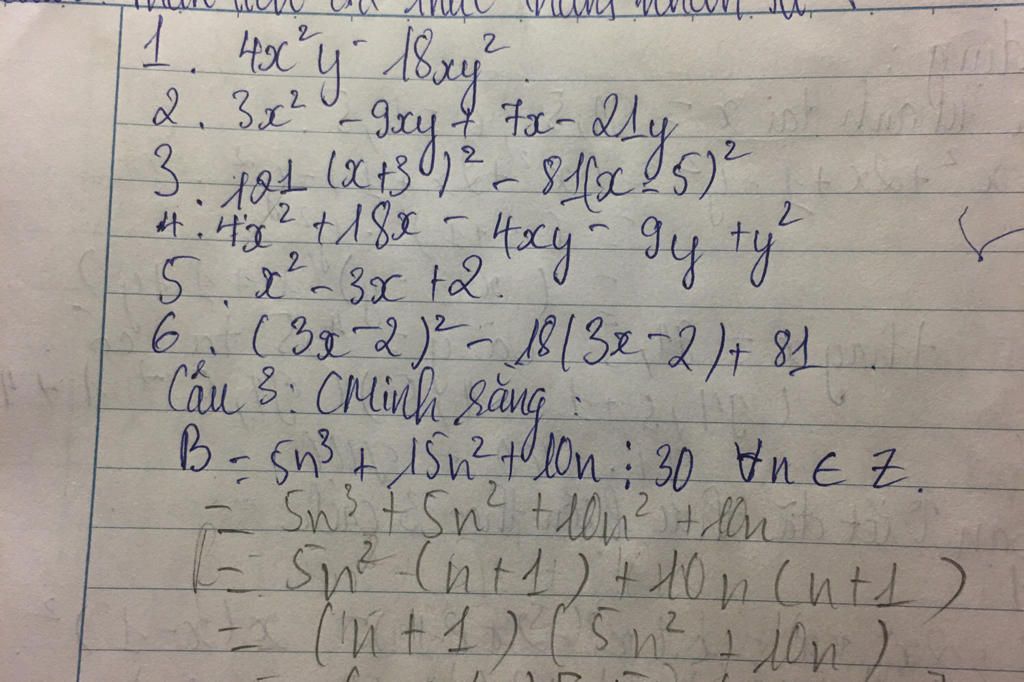 1. 4x²y - 18xy².
2. 3x² - 9xy + 7x - 21y
3. 121 (x+3)² - 81(x-5)²
4. 4x² + 18x - 4xy - 9y + y²
5. x² - 3x + 2.
6. (3x-2)² - 18(3x-2) + 81.
Câu 3: CMinh rằng:
B = 5n³ + 15n² + 10n ⋮ 30 ∀n ∈ Z.
= 5n³ + 5n² + 10n² + 10n
= 5n² (n+1) + 10n (n+1)
= (n+1) (5n² + 10n)